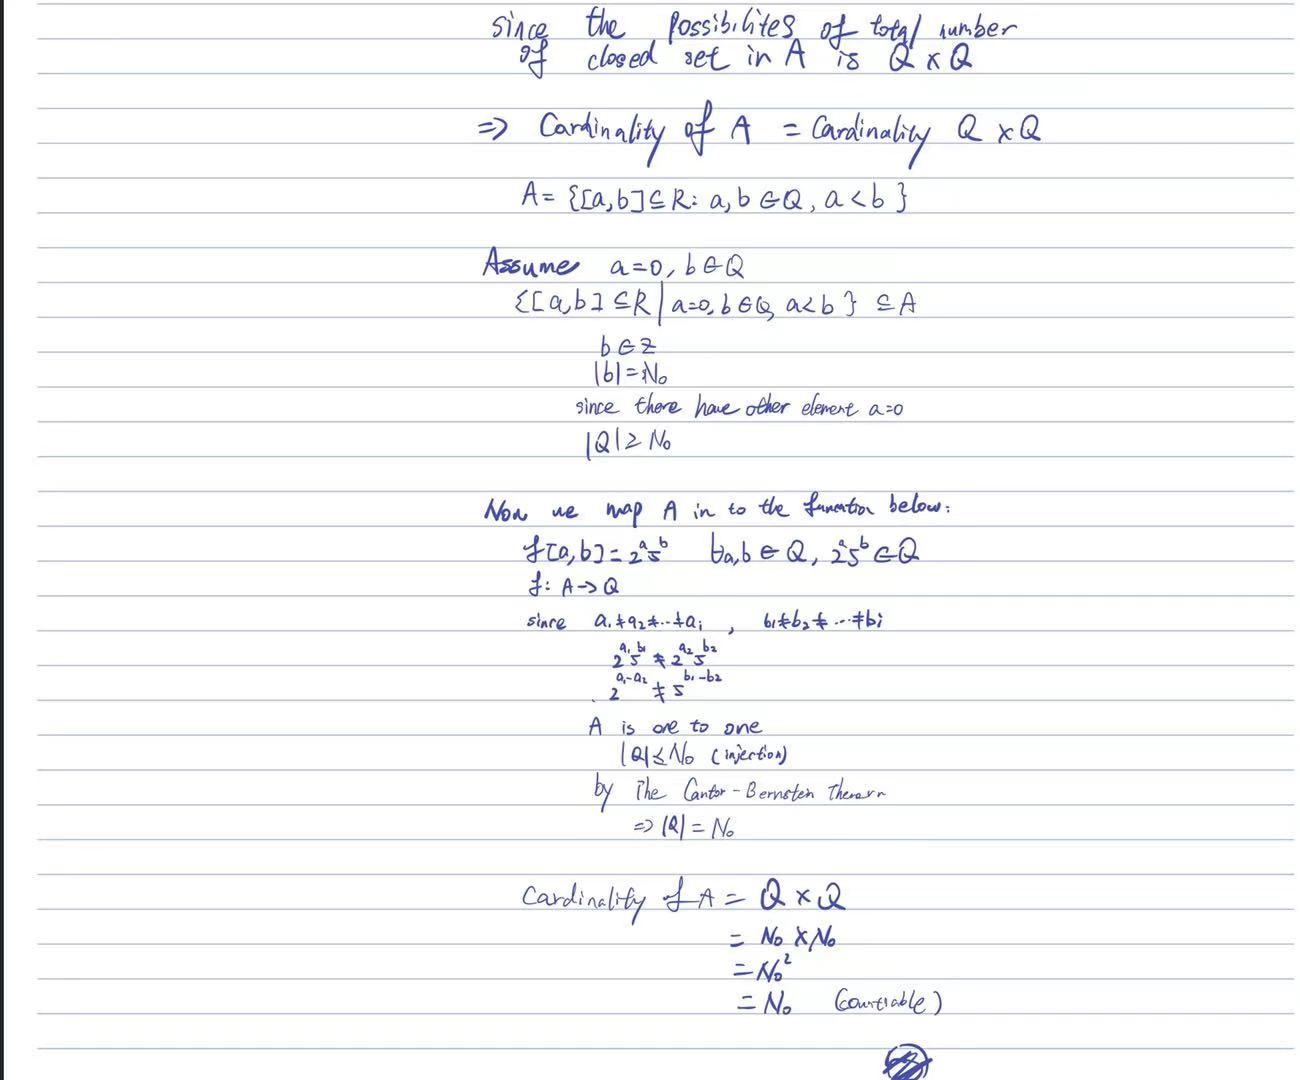 since the possibilites of total number
of closed set in A is Q x Q
=> Cardinality of A = Cardinality Q x Q
A = {[a,b]⊆R: a,b∈Q, a<b}
Assume a=0, b∈Q
{[a,b]⊆R | a=0, b∈Q, a<b} ⊆A
b∈Z
|b|=N₀
since there have other element a=0
|Q|≥N₀
Now we map A in to the function below:
f[a,b]=2ᵃ5ᵇ ∀a,b∈Q, 2ᵃ5ᵇ∈Q
f: A→Q
since a₁≠a₂≠...≠aᵢ , b₁≠b₂≠...≠bᵢ
2^a₁ 5^b₁ ≠ 2^a₂ 5^b₂
2^a₁-a₂ ≠ 5^b₁-b₂
A is one to one
|Q|≤N₀ (injection)
by The Cantor-Bernstein
=> |Q| = N₀
Cardinality of A = Q x Q
= N₀ x N₀
= N₀²
= N₀ (countable)